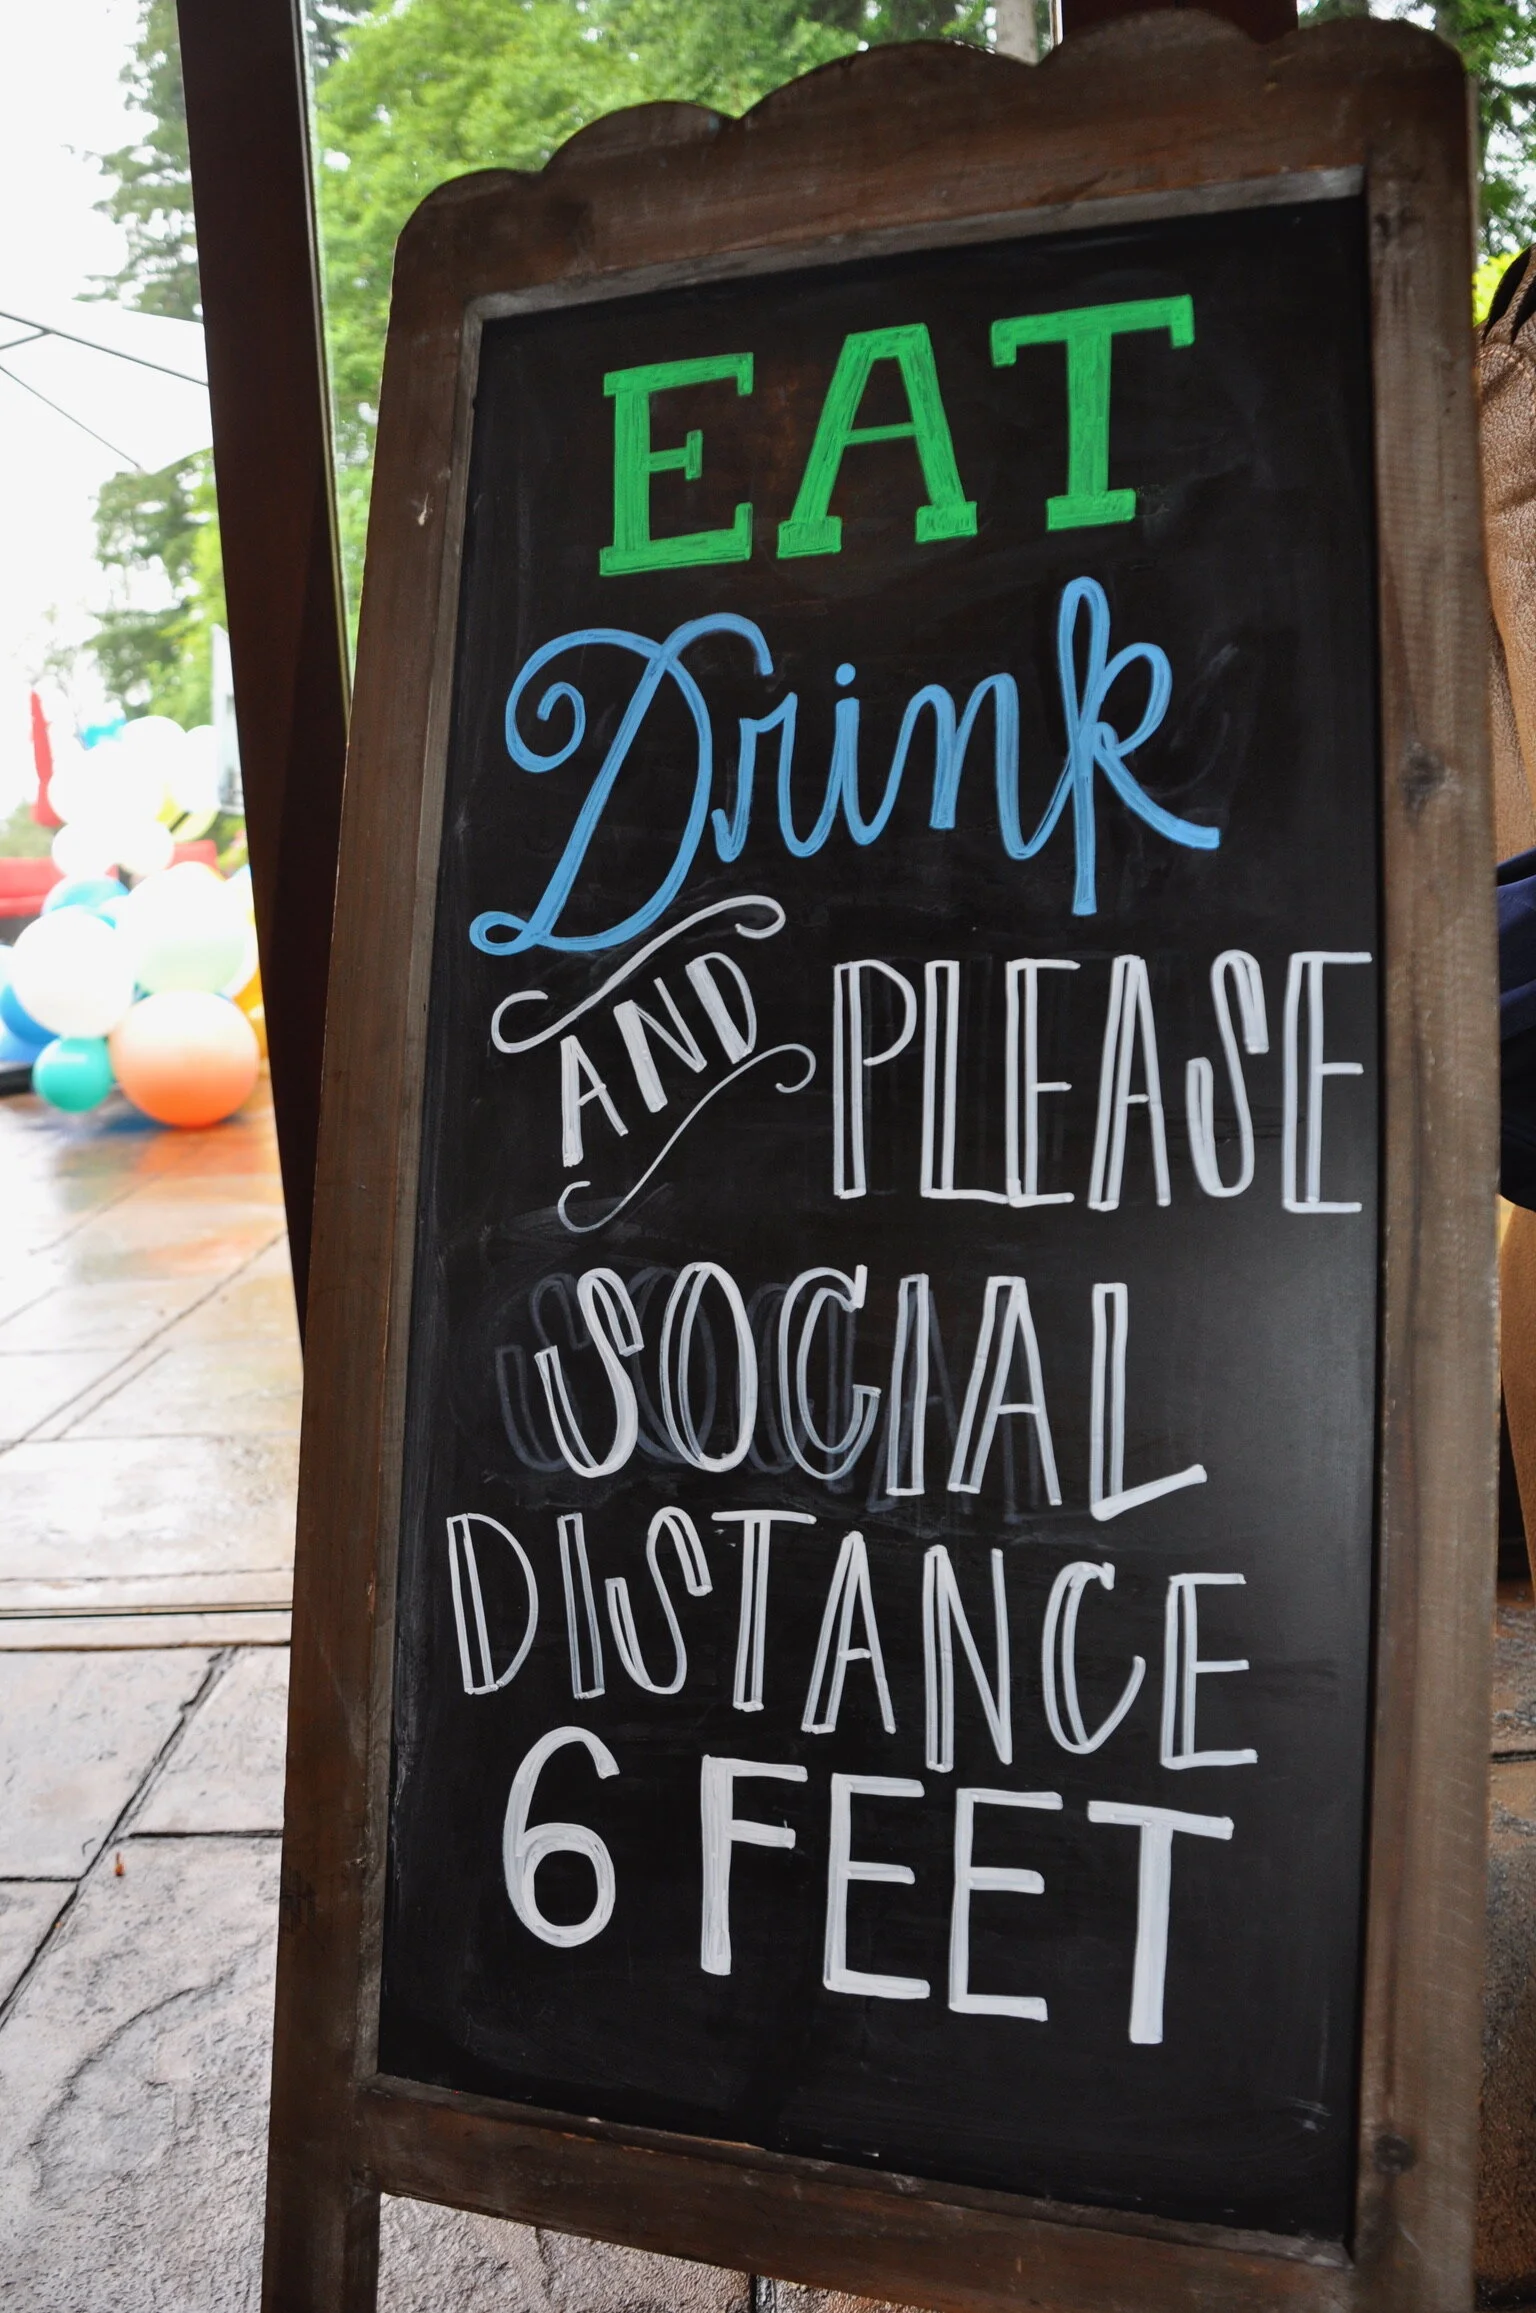 EAT
Drink
AND PLEASE
SOCIAL
DISTANCE
6 FEET